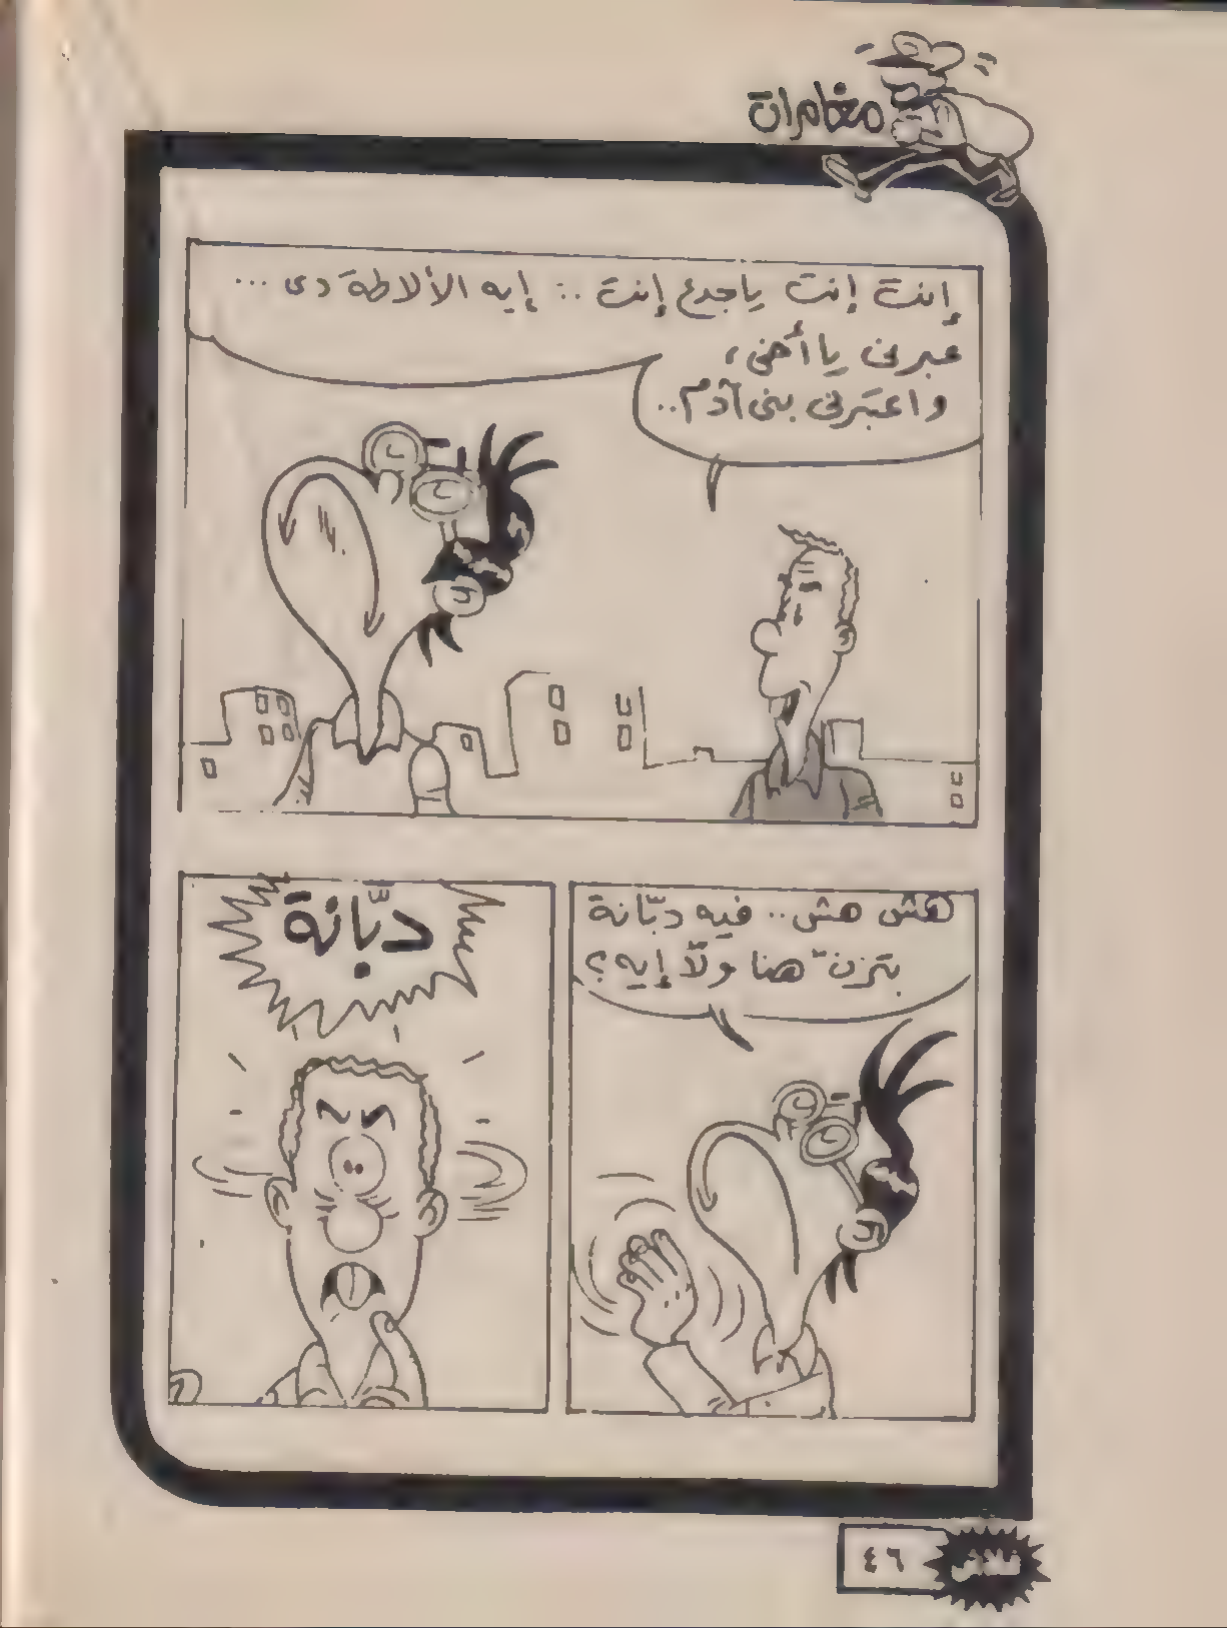 مغامرات
إنت إنت ياجدع إنت .. إيه الألاطة دى ...
عبرنى يا أخى،
واعتبرنى بنى آدم..
هش هش.. فيه دبّانة
بتزنّ هنا ولاّ إيه؟
دبّانة
فلاش
٤٦